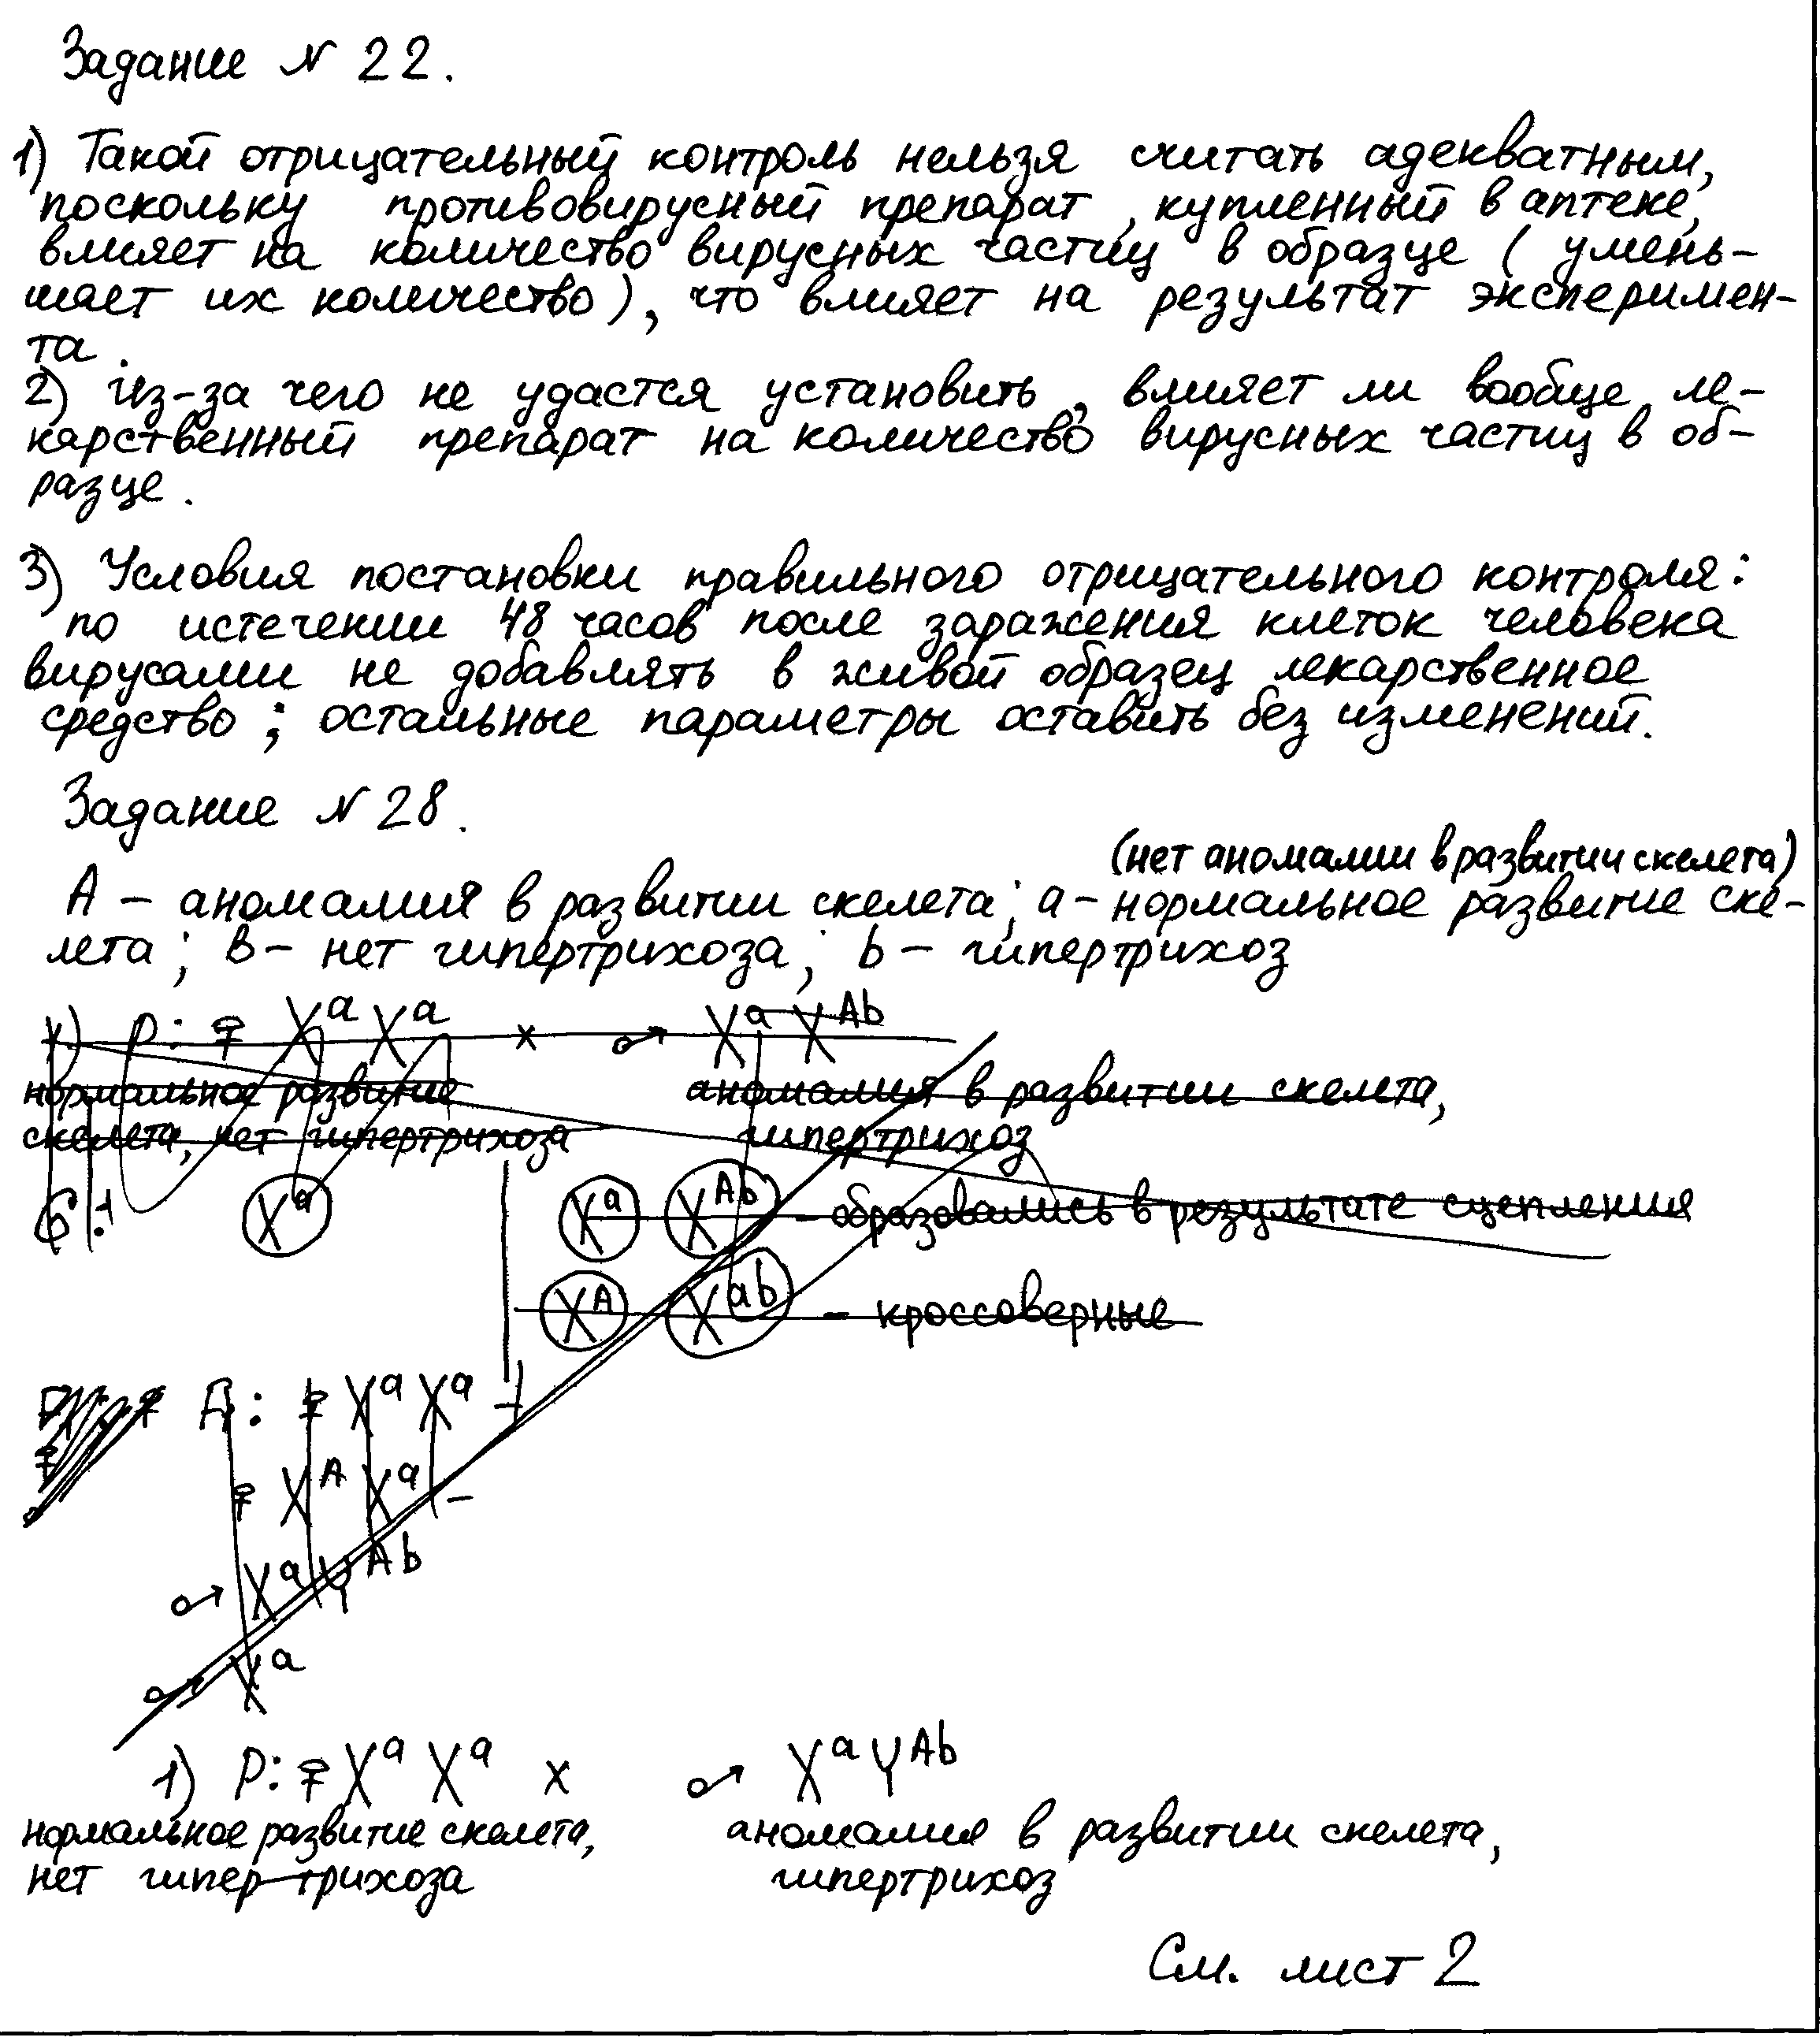 Задание N 22.
1) Такой отрицательный контроль нельзя считать адекватным,
поскольку противовирусный препарат, купленный в аптеке,
влияет на количество вирусных частиц в образце (умень-
шает их количество), что влияет на результат эксперимен-
та.
2) Из-за чего не удастся установить, влияет ли вообще ле-
карственный препарат на количество вирусных частиц в об-
разце.
3) Условия постановки правильного отрицательного контроля:
по истечении 48 часов после заражения клеток человека
вирусами не добавлять в живой образец лекарственное
средство; остальные параметры оставить без изменений.
Задание N 28.
(нет аномалии в развитии скелета)
А – аномалия в развитии скелета; а – нормальное развитие ске-
лета; В – нет гипертрихоза; b – гипертрихоз
1) P: ♀ XᵃXᵃ x ♂ XᵃXᴬᵇ
нормальное развитие аномалия в развитии скелета,
скелета, нет гипертрихоза гипертрихоз
G: Xᵃ Xᵃ Xᴬᵇ – образовались в результате сцепления
Xᴬ Xᵃᵇ – кроссоверные
F₁: ♀ XᵃXᵃ –
♀ XᴬXᵃ –
♂ XᵃYᴬᵇ
♂ Xᵃ
1) P: ♀ XᵃXᵃ x ♂ XᵃYᴬᵇ
нормальное развитие скелета, аномалия в развитии скелета,
нет гипертрихоза гипертрихоз
См. лист 2